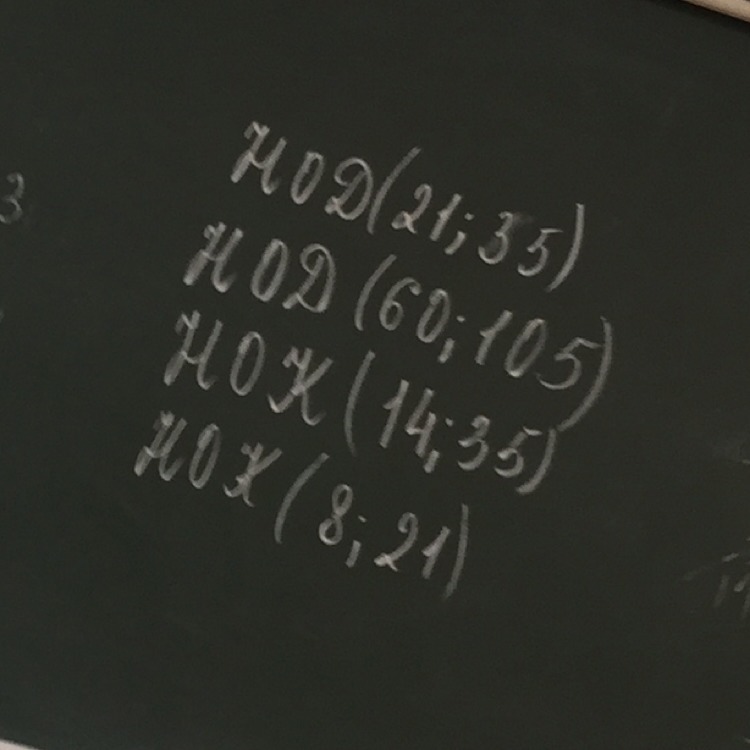 3
НОД(21;35)
НОД (60;105)
НОК (14;35)
НОК (8;21)